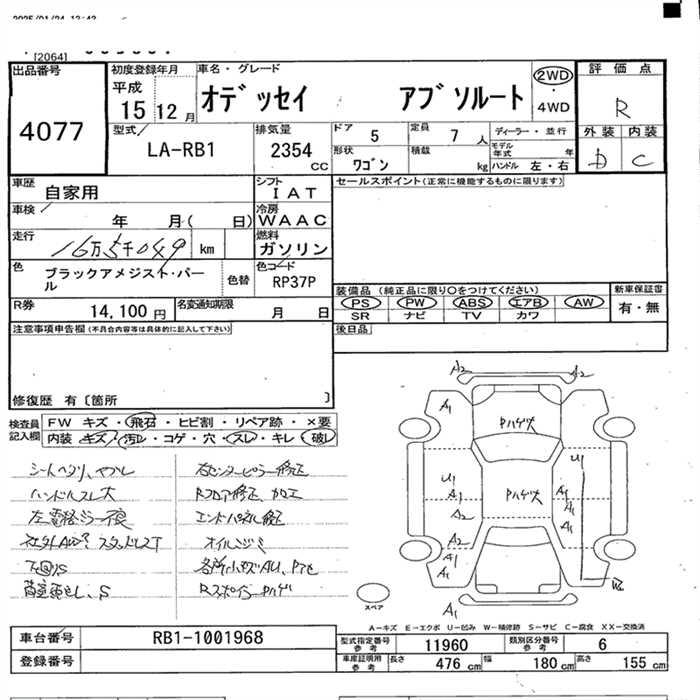 2025/01/24 13:43
[2064]
出品番号
4077
初度登録年月
平成
15
12 月
車名・グレード
オデッセイ アブソルート
2WD
・
4WD
評価点
R
外装 内装
D C
型式
LA-RB1
排気量
2354
CC
ドア 5
定員 7 人
形状
ワゴン
積載
kg
ディーラー・並行
モデル
年式 年
ハンドル 左・右
車歴 自家用
車検 年 月( 日)
走行 16万5千049 km
色
ブラックアメジスト・パー
ル
色替
シフト
IAT
冷房
WAAC
燃料
ガソリン
色コード
RP37P
R券 14,100 円
名変通知期限 月 日
セールスポイント(正常に機能するものに限ります)
装備品 (純正品に限り○をつけてください)
PS PW ABS エアB AW
SR ナビ TV カワ
新車保証書
有・無
後日品
注意事項申告欄(不具合内容等は具体的に記入して下さい)
修復歴 有〔箇所 〕
検査員
記入欄
FW キズ・飛石・ヒビ割・リペア跡・×要
内装 キズ・汚レ・コゲ・穴・スレ・キレ・破レ
シートヘタリ、ヤブレ
ハンドルスレ大
左電格ミラー不良
下回りS
右センターピラー修正
Rフロア修正、カロエ
エンドパネル修正
オイルニジミ
A2 A2
A1
Pハゲ大
U1 U1
A1 Pハゲ大 A1
A2 A1
A1
A2 A2
A1 A1
A1
W2
スペア
A1
A-キズ E-エクボ U-凹み W-補修跡 S-サビ C-腐食 XX-交換済
車台番号 RB1-1001968
登録番号
型式指定番号
参考
11960
類別区分番号
参考
6
車庫証明用
参考
長さ 476 cm 幅 180 cm 高さ 155 cm